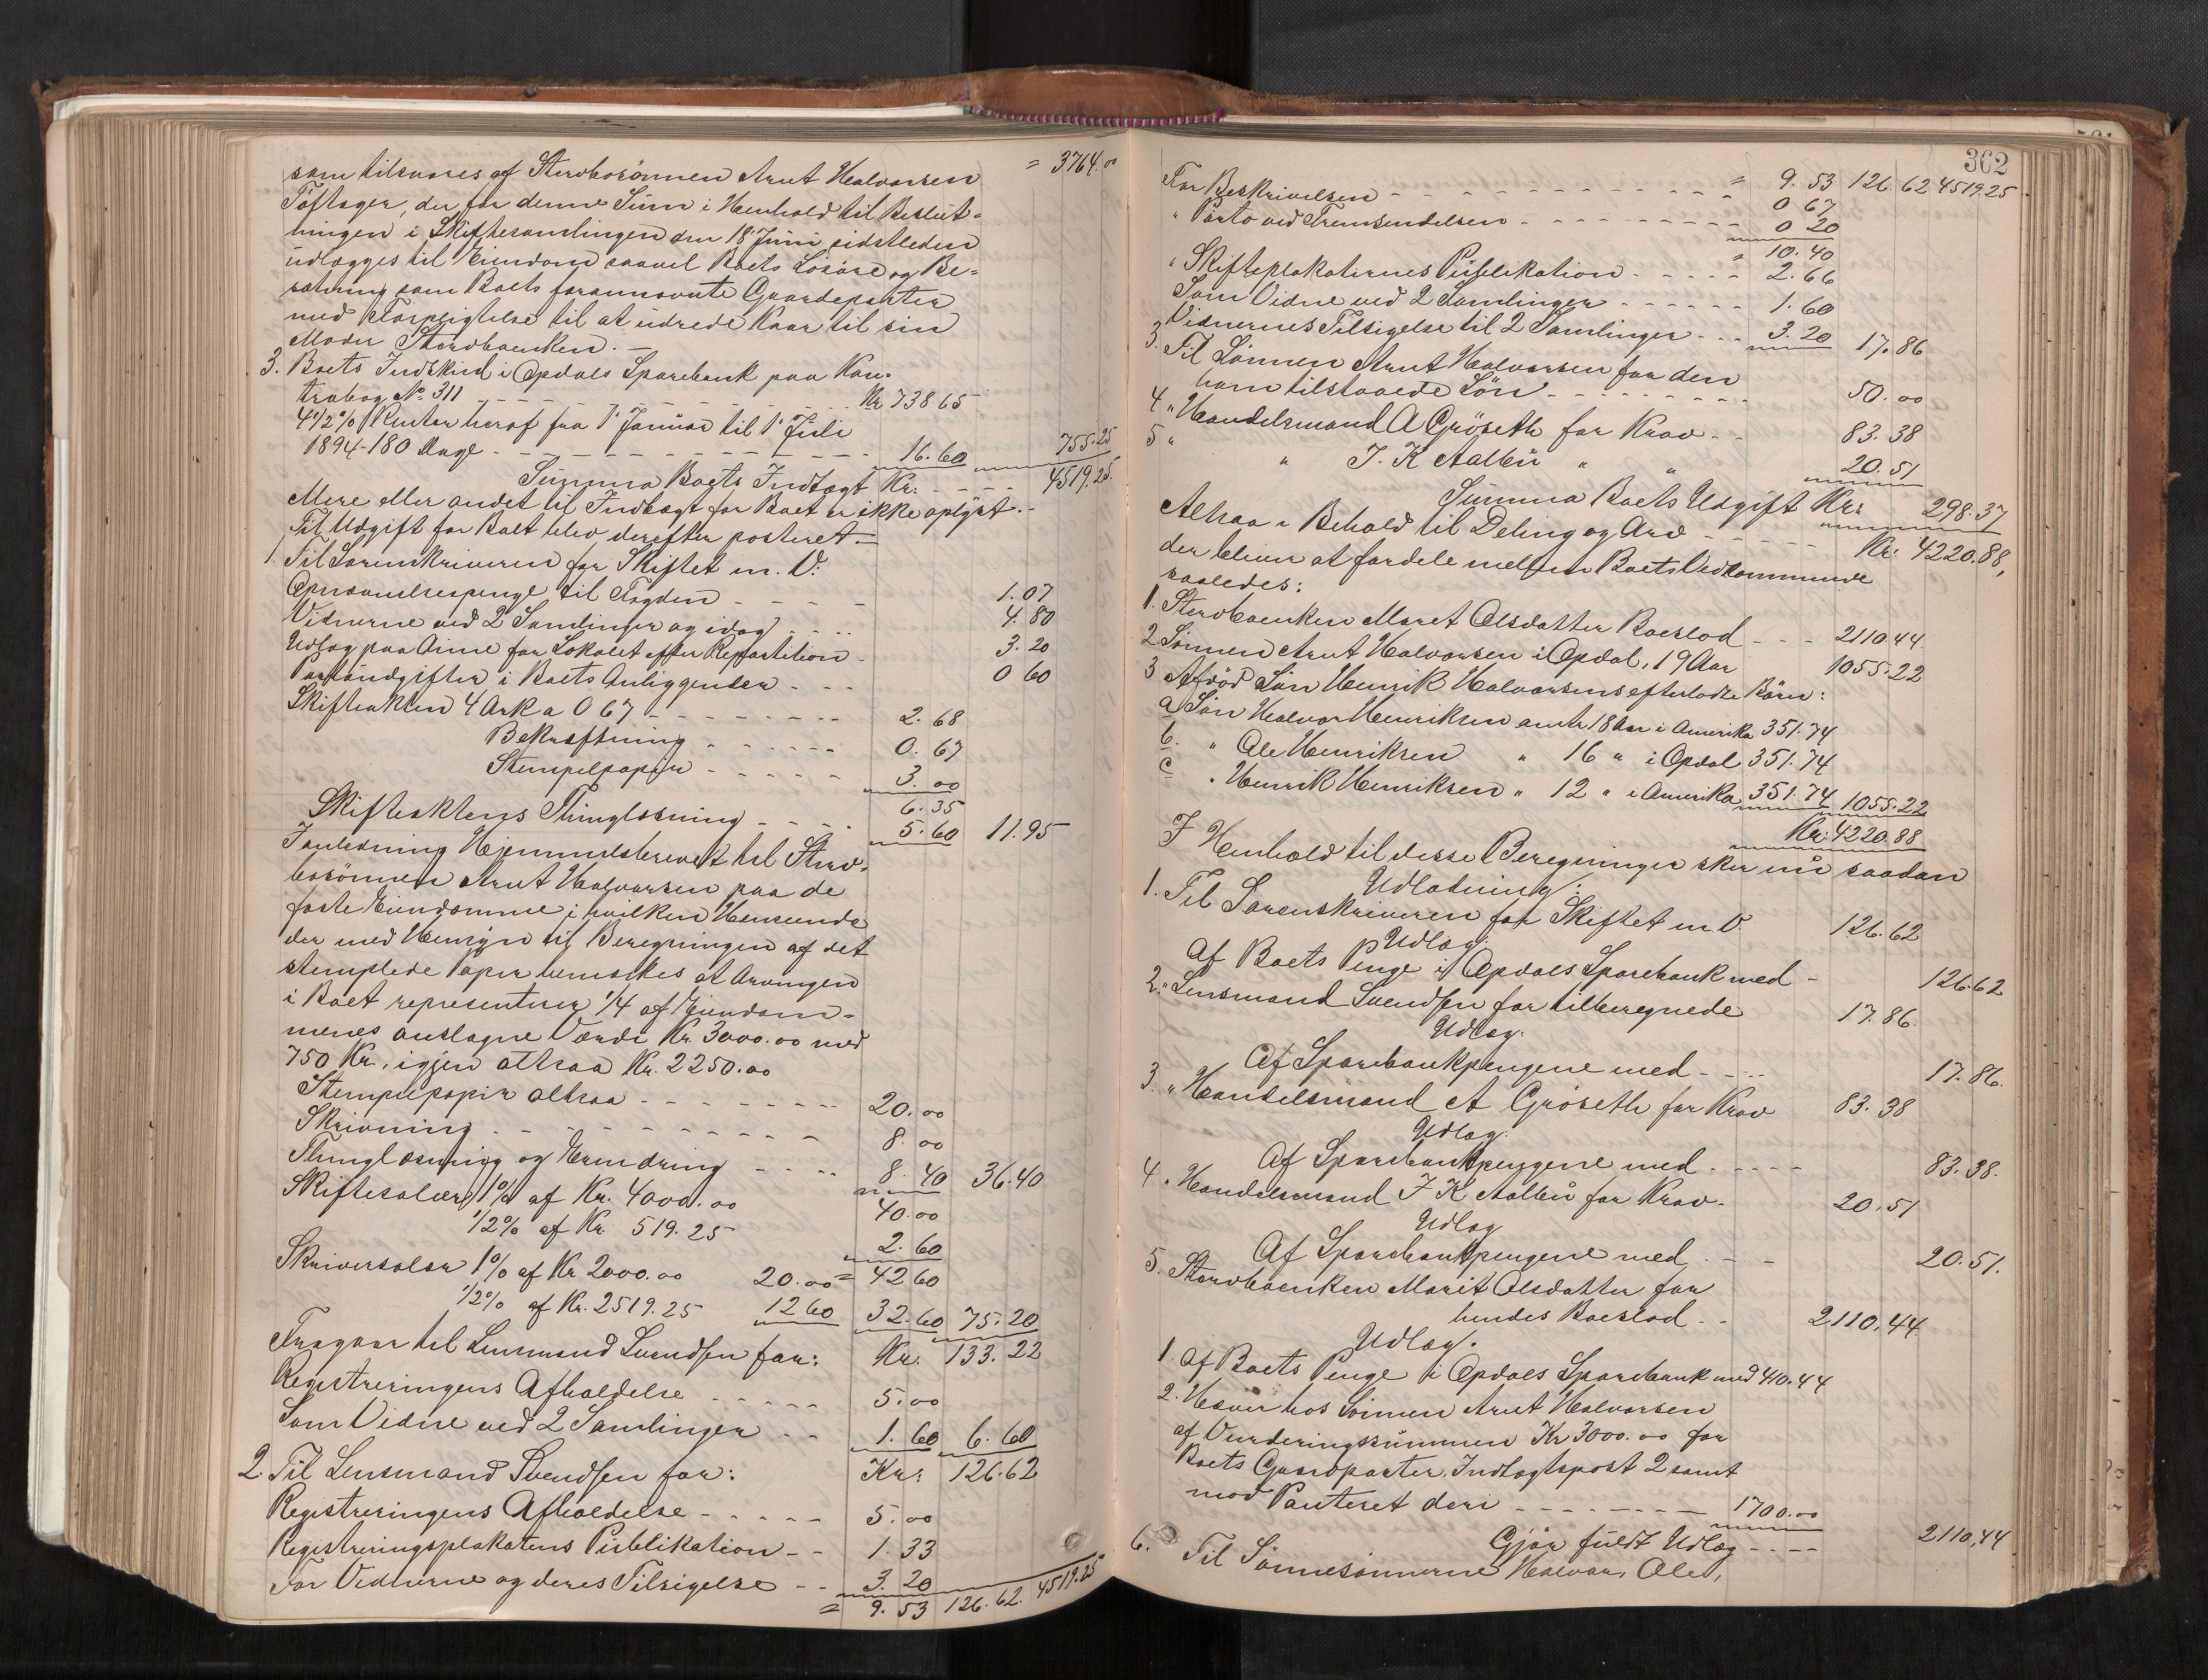 som tilsvares af Stervbosönnen Arnt Halvorsen = 3764.00
Töftager, der for denne Sum i Henhold til Beslut-
ningen i Skiftesamlingen den 18 Juni sidstleden
udlægges til Eiendom saavel Boets Lösöre og Be-
sætning som Boets forannævnte Gaardeparter
med Forpligtelse til at udrede Kaar til sin
Moder Stervboenken. —
3. Boets Indskud i Opdals Sparebank paa Kon-
trabog No 311 - - - Kr 738 65
4 1/2 % Renter heraf fra 1 Januar til 1 Juli
1894 - 180 Dage - - - 16.60 755.25
Summa Boets Indtægt Kr. - - - 4519.25.
Mere eller andet til Indtægt for Boet er ikke oplyst. -
Til Udgift for Boet blev derefter posteret. —
1. Til Sorenskriveren for Skiftet m. V:
Opnævnelsespenge til Fogden - - - 1.07
Vidnerne ved 2 Samlinger og idag - - - 4.80
Udlæg paa Aune for Lokalet efter Repartition - 3.20
Portoudgifter i Boets Anliggender - - - 0 60
Skifteakten 4 Ark a 0 67 - - - 2.68
Bekræftning - - - 0.67
Stempelpapir - - - 3.00
6.35
Skifteaktens Thinglæsning - - - 5.60 11.95
I anledning Hjemmelsbrevet til Sterv-
bosönnen Arnt Halvorsen paa de
faste Eiendomme i hvilken Henseende
der med Hensyn til Beregningen af det
stemplede Papir bemærkes at Arvingen
i Boet representerer 1/4 af Eiendom-
menes anslagne Værdi Kr. 3000.00 med
750 Kr., igjen altsaa Kr. 2250.00
Stempelpapir altsaa - - - 20.00
Skrivning - - - 8.00
Thinglæsning og Erindring - - - 8.40 36.40
Skiftesalær 1 % af Kr. 4000.00 40.00
1/2 % af Kr. 519.25 2.60
Skriversalær 1 % af Kr 2000.00 20.00 = 42 60
1/2 % af Kr. 2519.25 12 60 32.60 75.20
Fragaar til Lensmand Svendsen for: Kr. 133.22
Registreringens Afholdelse - - - 5.00
Som Vidne ved 2 Samlinger - - 1.60 6.60
Kr: 126.62
2. Til Lensmand Svendsen for:
Registreringens Afholdelse - - - 5.00
Registreringsplakatens Publikation - - 1.33
For Vidnerne og deres Tilsigelse - - 3.20
= 9.53 126.62. 4519.25
362
For Beskrivelsen - - - = 9.53 126.62 4519.25
0 67
" Porto ved Fremsendelsen - - - 0 20
= 10.40
" Skifteplakaternes Publikation - - - 2.66
Som Vidne ved 2 Samlinger - - - 1.60
Vidnernes Tilsigelse til 2 Samlinger - - 3.20 17.86
3. Til Sönnen Arnt Halvorsen for den
ham tilstaaede Lön - - - 50.00
4 " Handelsmand A Gröseth for Krav - - 83.38
5 " " J. K Aalbu " " 20.51
Summa Boets Udgift Kr: 298.37
Altsaa i Behold til Deling og Arv - - - Kr: 4220.88,
der bliver at fordele mellem Boets Vedkommende
saaledes:
1. Stervboenken Marit Olsdatter Boeslod - - - 2110.44.
2 Sönnen Arnt Halvorsen i Opdal, 19 Aar 1055.22
3 Afdöd Sön Henrik Halvorsens efterladte Börn:
a) Sön Halvor Henriksen omtr 18 Aar i Amerika 351.74
b. " Ole Henriksen " 16 " i Opdal 351.74
c . Henrik Henriksen " 12 " i Amerika 351.74 1055.22
Kr: 4220.88
I Henhold til disse Beregninger sker nu saadan
Udlodning:
1. Til Sorenskriveren for Skiftet m V. 126.62
Udlæg.
Af Boets Penge i Opdals Sparebank med - 126.62
2. " Lensmand Svendsen for tilberegnede 17.86.
Udlæg.
Af Sparebankpengene med - - - 17.86.
3. " Handelsmand A Gröseth for Krav 83.38
Udlæg.
Af Sparebankpengene med - - - 83.38.
4 . Handelsmand J K Aalbu for Krav. 20.51
Udlæg
Af Sparebankpengene med - - - 20.51.
5. Stervboenken Marit Olsdatter for
hendes Boeslod - - 2110.44
Udlæg.
1. Af Boets Penge i Opdals Sparebank med 410.44
2. Hæver hos Sönnen Arnt Halvorsen
af Vurderingssummen Kr 3000.00 for
Boets Gaardparter, Indtægtspost 2 samt
mod Panteret deri - - - 1700.00
Gjör fuldt Udlæg - - - 2110,44
6. Til Sönnesönnerne Halvor, Ole,